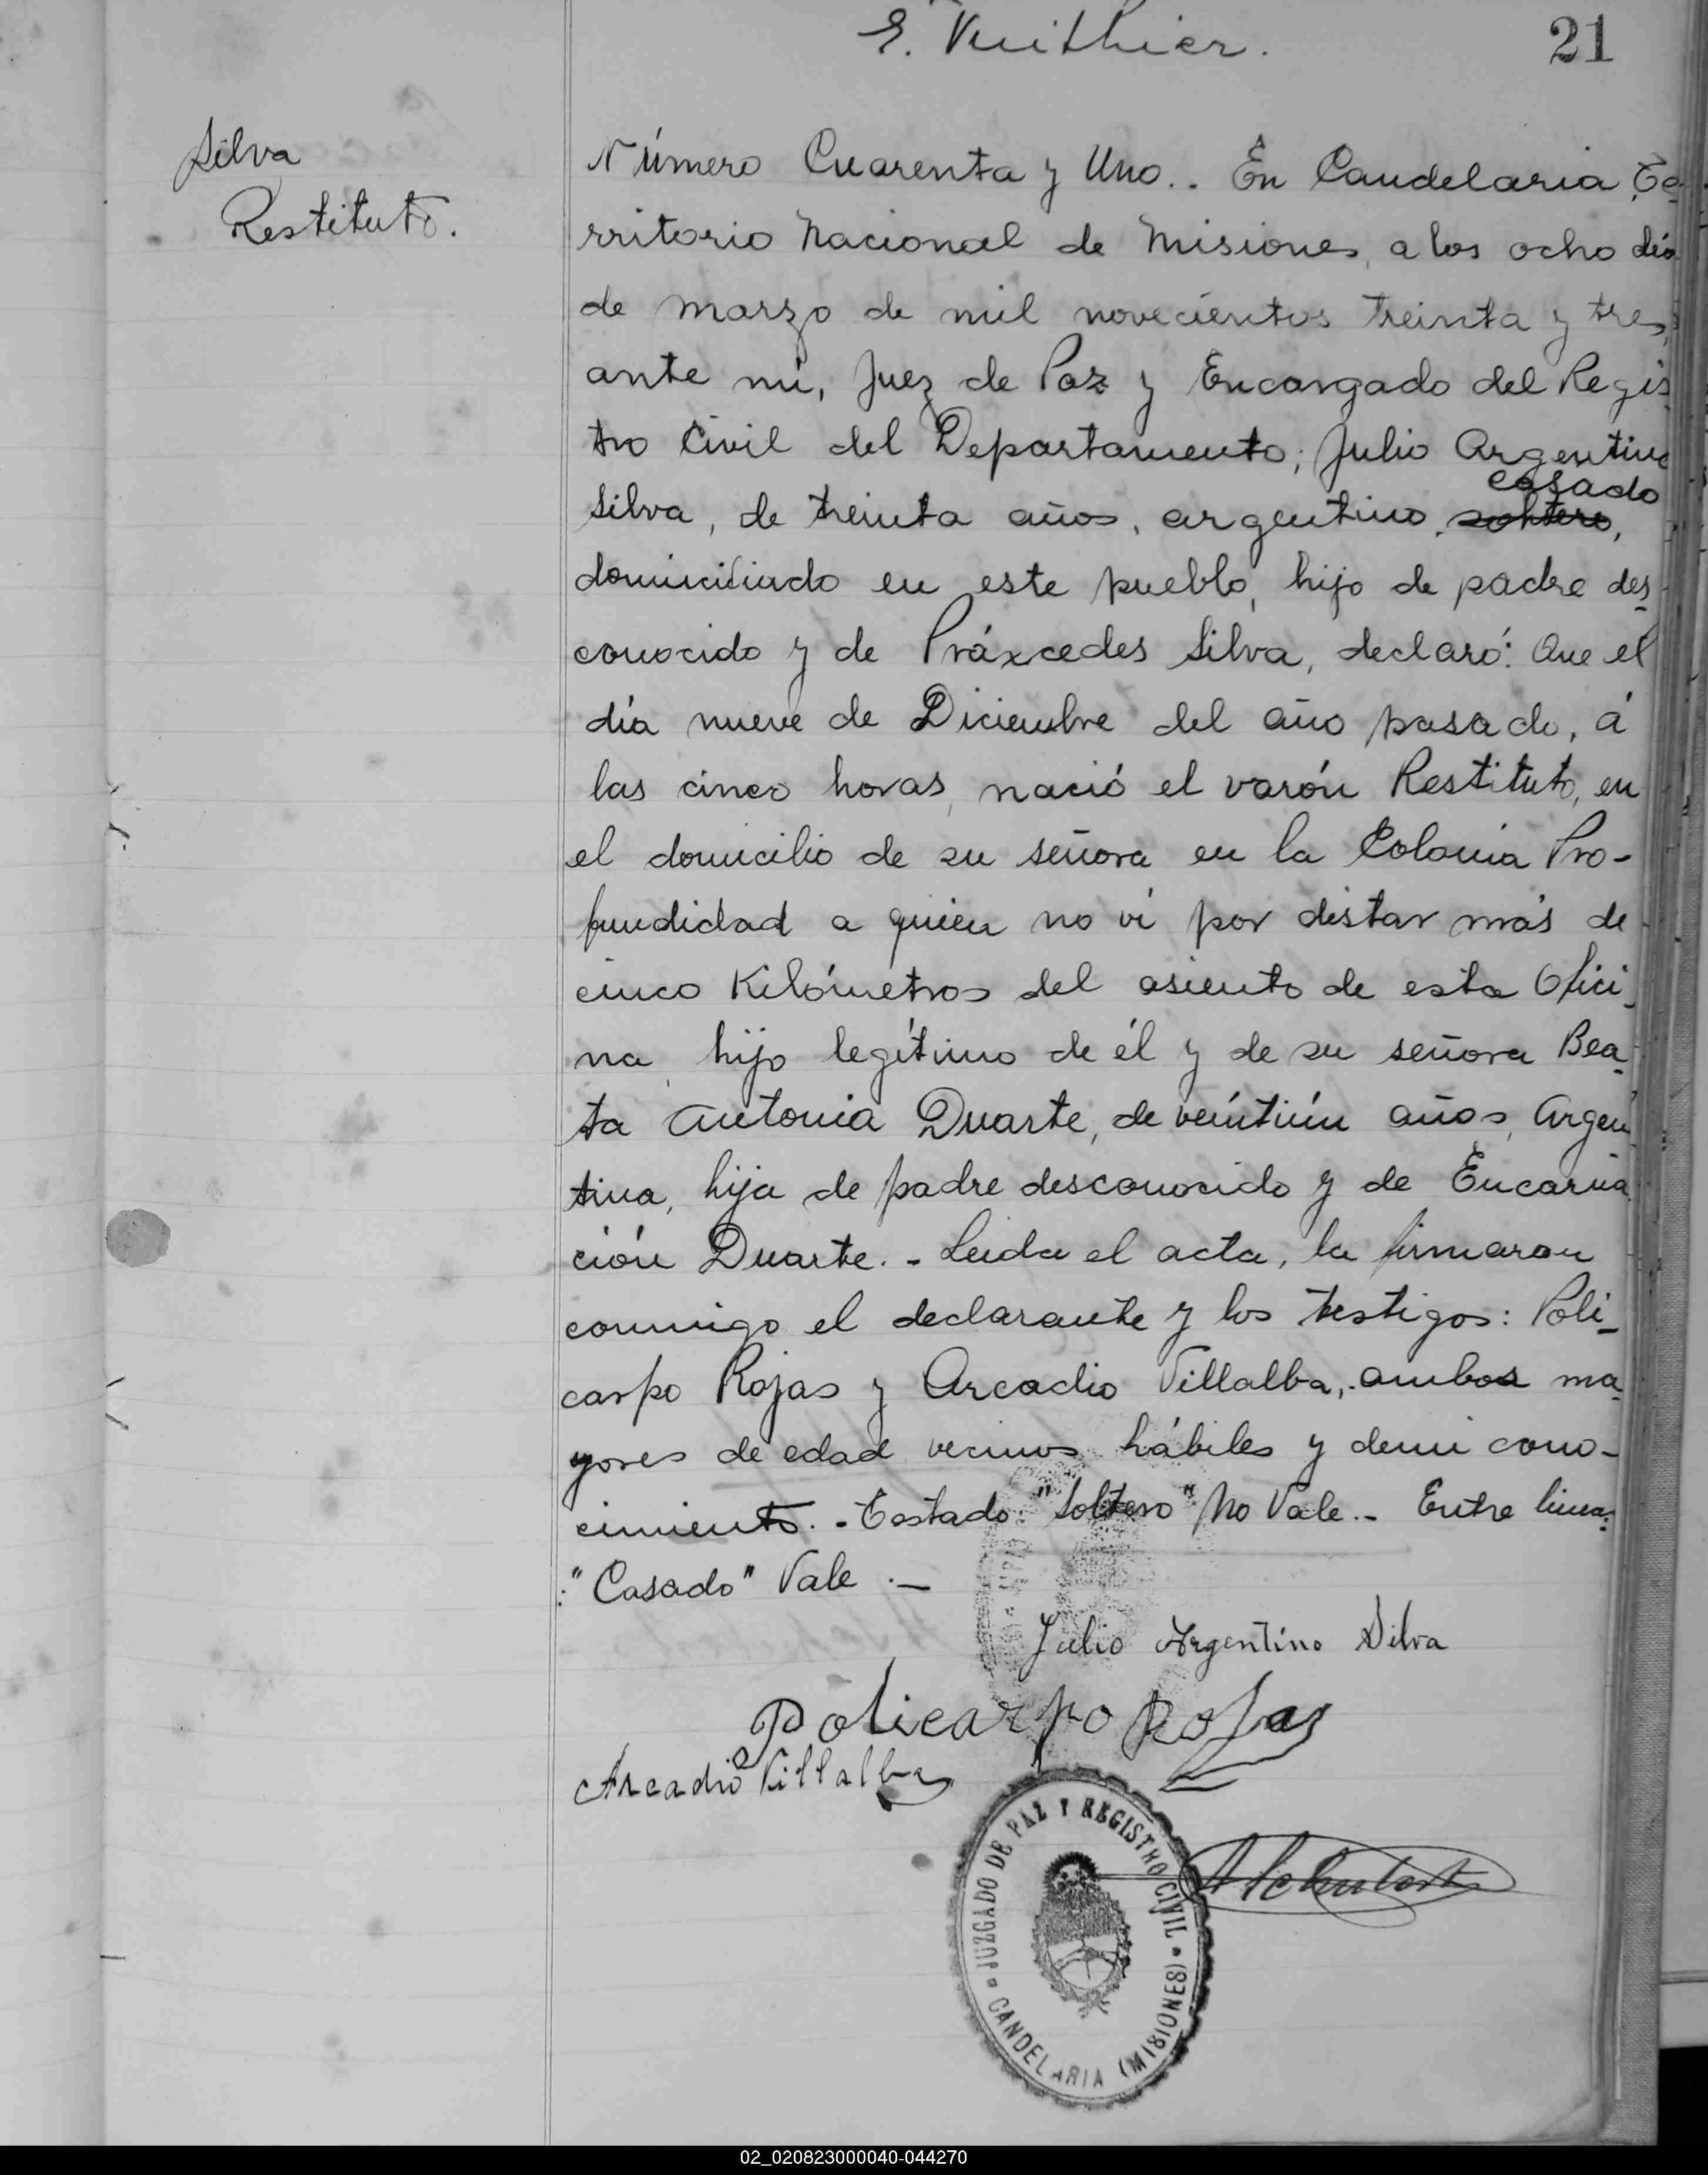 E. Vuithier.
21
Silva
Restituto.
Número Cuarenta y Uno.. En Candelaria, Te-
rritorio Nacional de Misiones, a los ocho día
de marzo de mil novecientos treinta y tres,
ante mí, Juez de Paz y Encargado del Regis-
tro Civil del Departamento; Julio Argentino
casado
Silva, de treinta años, argentino, soltero,
domiciliado en este pueblo, hijo de padre des-
conocido y de Práxcedes Silva, declaró: Que el
día nueve de Diciembre del año pasado, á
las cinco horas, nació el varón Restituto, en
el domicilio de su señora en la Colonia Pro-
fundidad a quien no ví por distar más de
cinco Kilómetros del asiento de esta Ofici-
na, hijo legítimo de él y de su señora Bea-
ta Antonia Duarte, de veintiún años, Argen-
tina, hija de padre desconocido y de Encarna-
ción Duarte. - Leida el acta, la firmaron
conmigo el declarante y los testigos: Poli-
carpo Rojas y Arcadio Villalba, ambos ma-
yores de edad vecinos hábiles y de mi cono-
cimiento. - Testado: "Soltero" No Vale. - Entre linea:
: "Casado" Vale . —
Julio Argentino Silva
Policarpo Rojas
Arcadio Villalba
JUZGADO DE PAZ Y REGISTRO CIVIL
CANDELARIA (MISIONES)
02_020823000040-044270